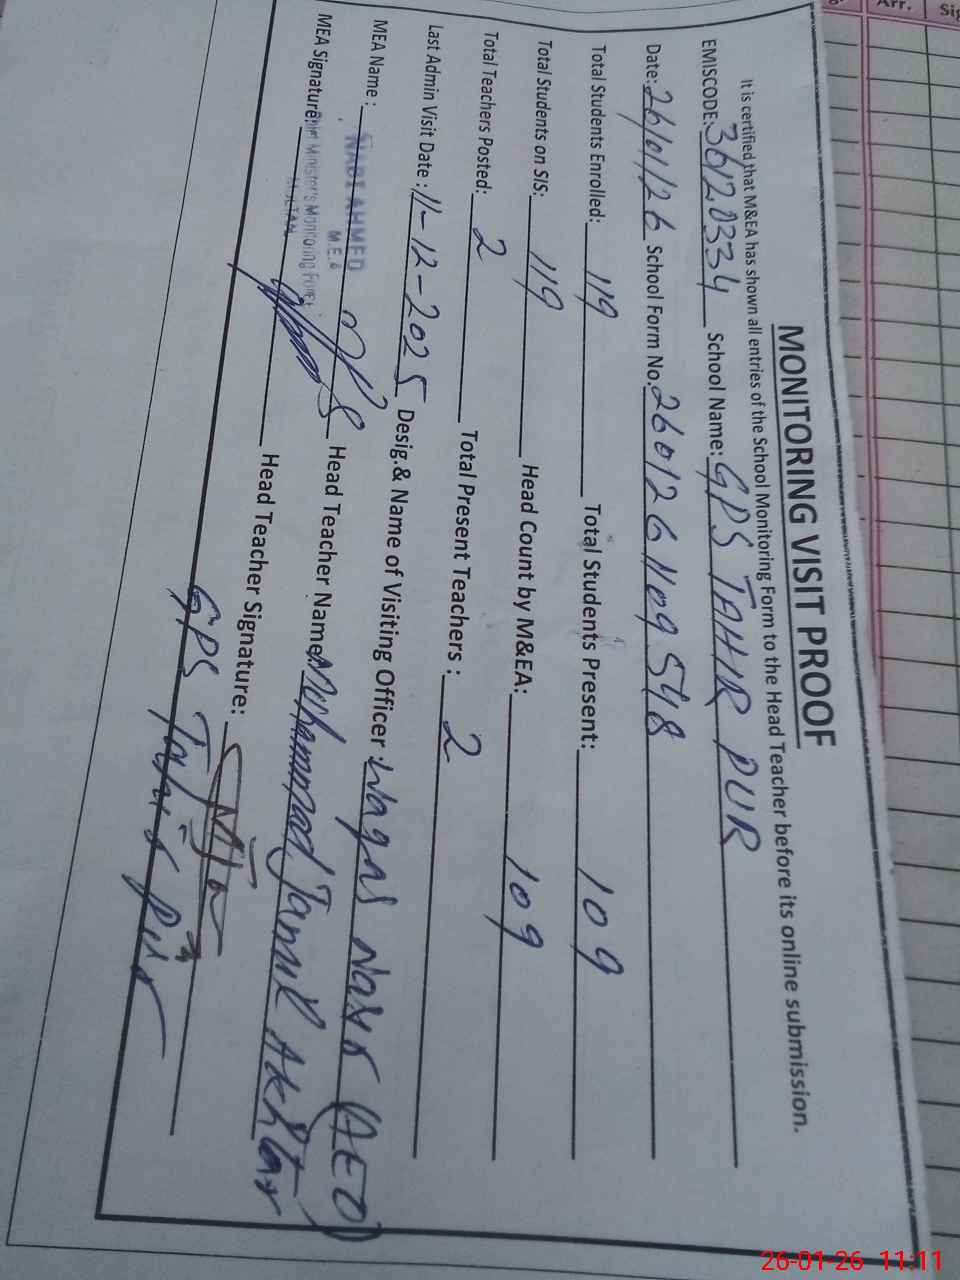 MONITORING VISIT PROOF
It is certified that M&EA has shown all entries of the School Monitoring Form to the Head Teacher before its online submission.
EMISCODE: 36120334 School Name: GPS TAHIR PUR
Date: 26/01/26 School Form No. 2601261109548
Total Students Enrolled: 119 Total Students Present: 109
Total Students on SIS: 119 Head Count by M&EA: 109
Total Teachers Posted: 2 Total Present Teachers : 2
Last Admin Visit Date : 11-12-2025 Desig.& Name of Visiting Officer : Waqas Nasir (AEO)
MEA Name : NABI AHMED Head Teacher Name: Muhammad Jamil Akhtar
M.E.A
MEA Signature: Chief Minister's Monitoring Force Head Teacher Signature:
MULTAN
GPS Tahir Pur
Arr. Sig
26-01-26 11:11